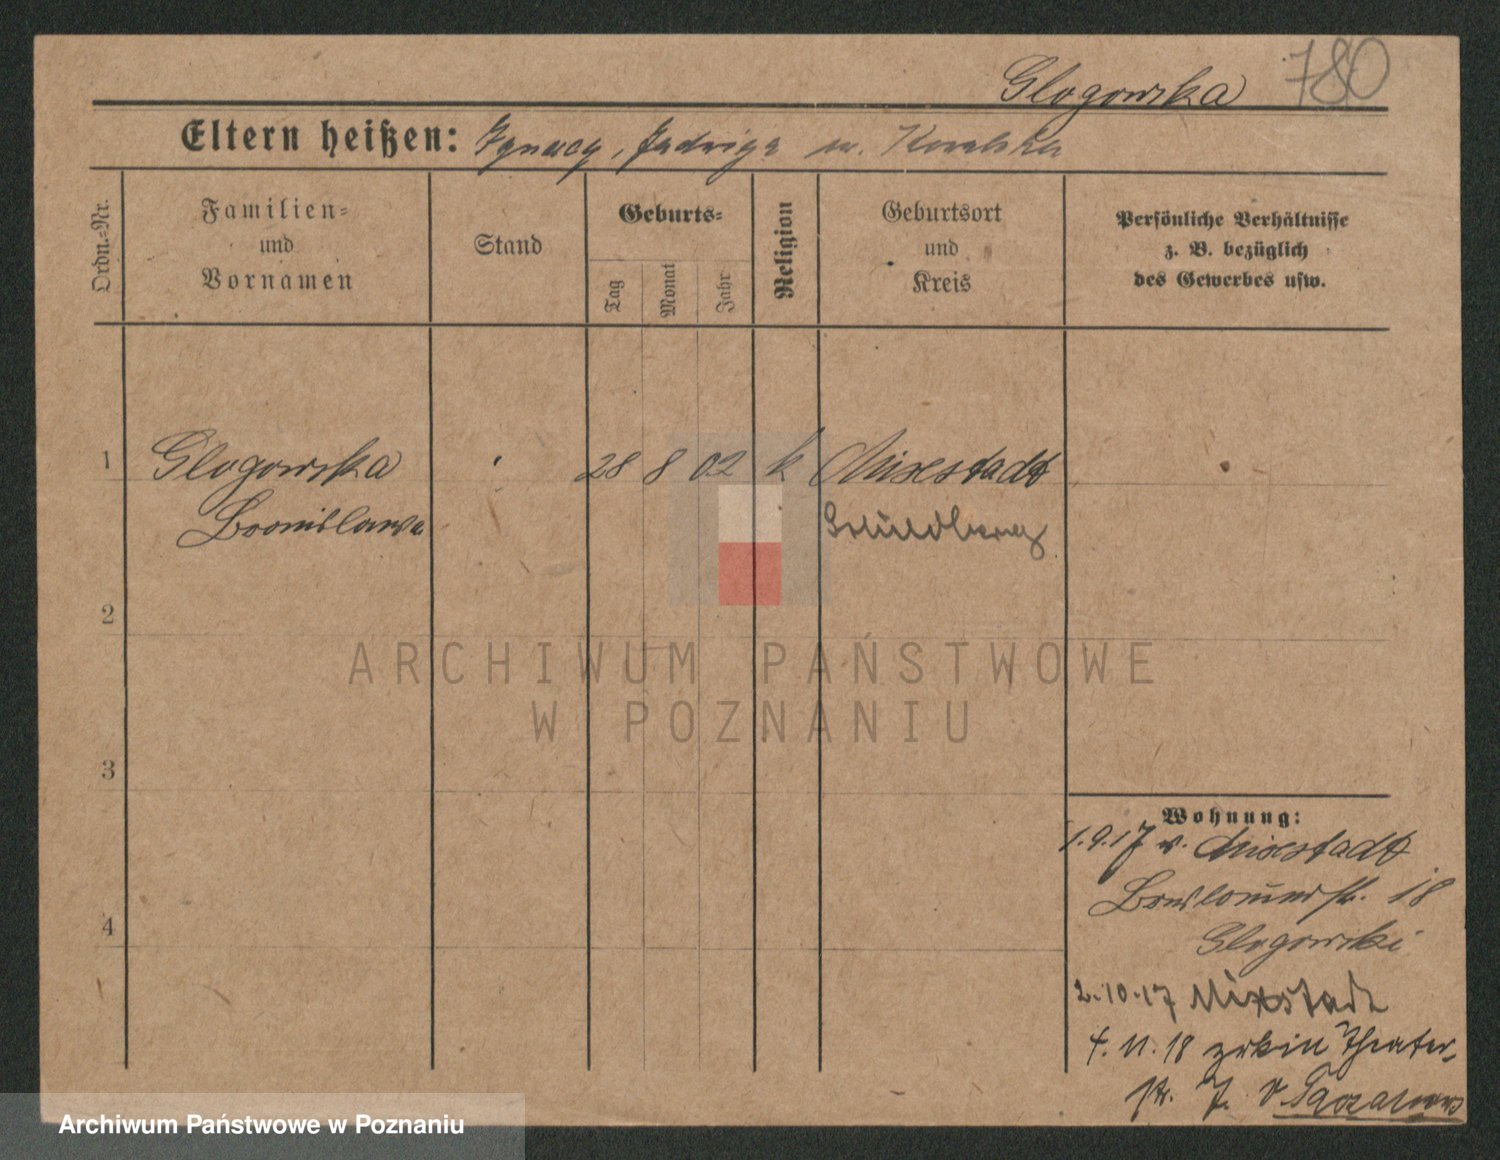 Glogowska 780
Eltern heißen: Ignacy, Jadwiga
Ordn.-Nr.
Familien-
und
Vornamen
Stand
Geburts-
Tag
Monat
Jahr
Religion
Geburtsort
und
Kreis
Persönliche Verhältnisse
z. B. bezüglich
des Gewerbes usw.
1 Glogowska 28 8 02 k Mixstadt
Bronislawa Schildberg
2
ARCHIWUM PAŃSTWOWE
W POZNANIU
3
Wohnung:
1.9.17 v. Mixstadt
18
4 Glogowski
2.10.17 Mixstadt
4.11.18 Theater-
str. 7. v
Archiwum Państwowe w Poznaniu